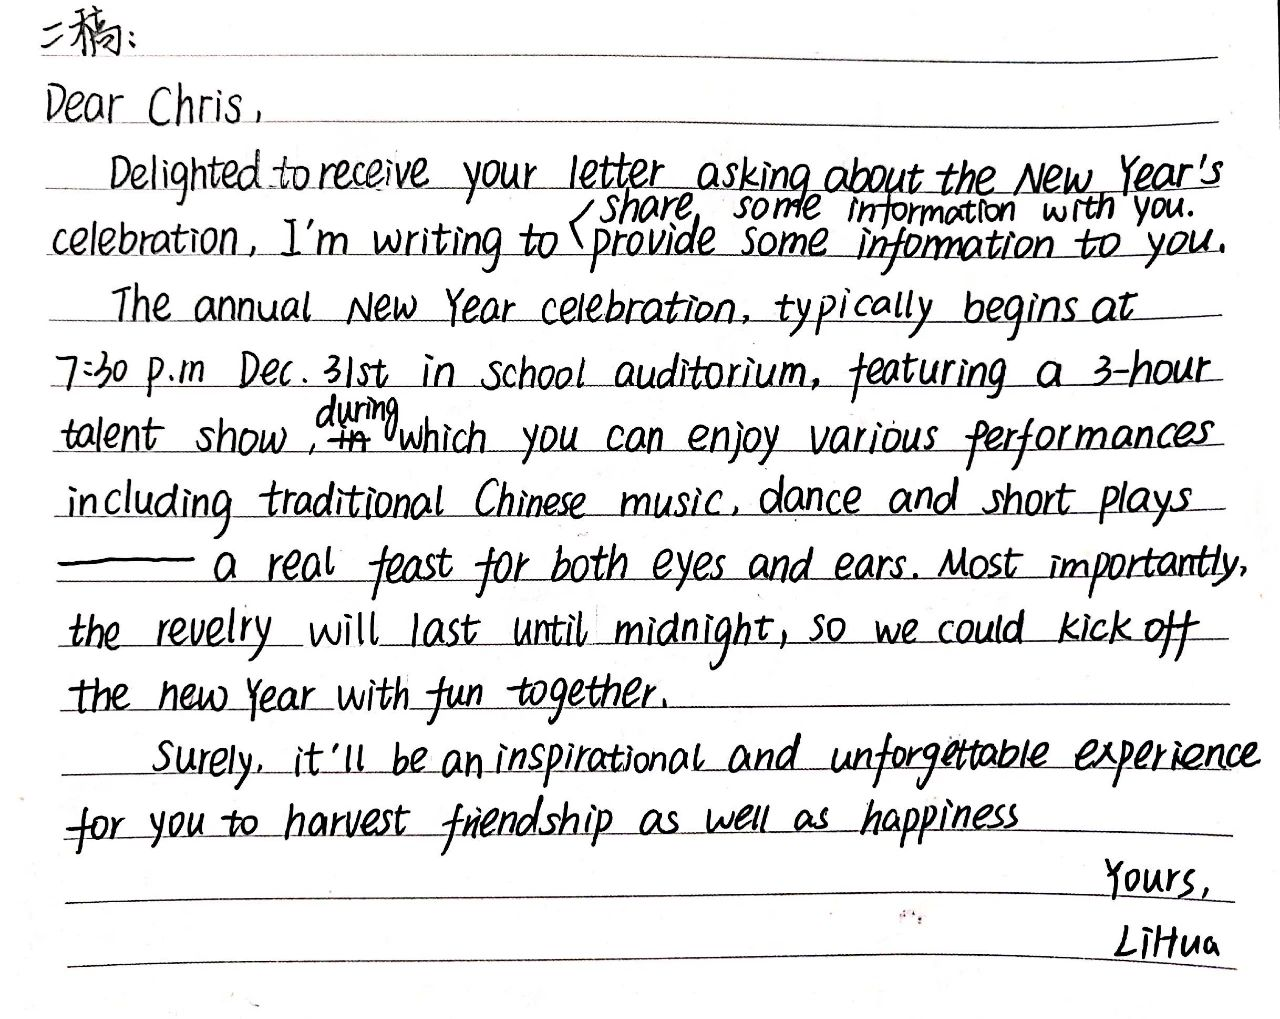 二稿:
Dear Chris,
Delighted to receive your letter asking about the New Year's
share some information with you.
celebration, I'm writing to provide some information to you.
The annual New Year celebration, typically begins at
7:30 p.m Dec. 31st in school auditorium, featuring a 3-hour
during
talent show, in which you can enjoy various performances
including traditional Chinese music, dance and short plays
—— a real feast for both eyes and ears. Most importantly,
the revelry will last until midnight, so we could kick off
the new Year with fun together.
Surely, it'll be an inspirational and unforgettable experience
for you to harvest friendship as well as happiness
Yours,
LiHua